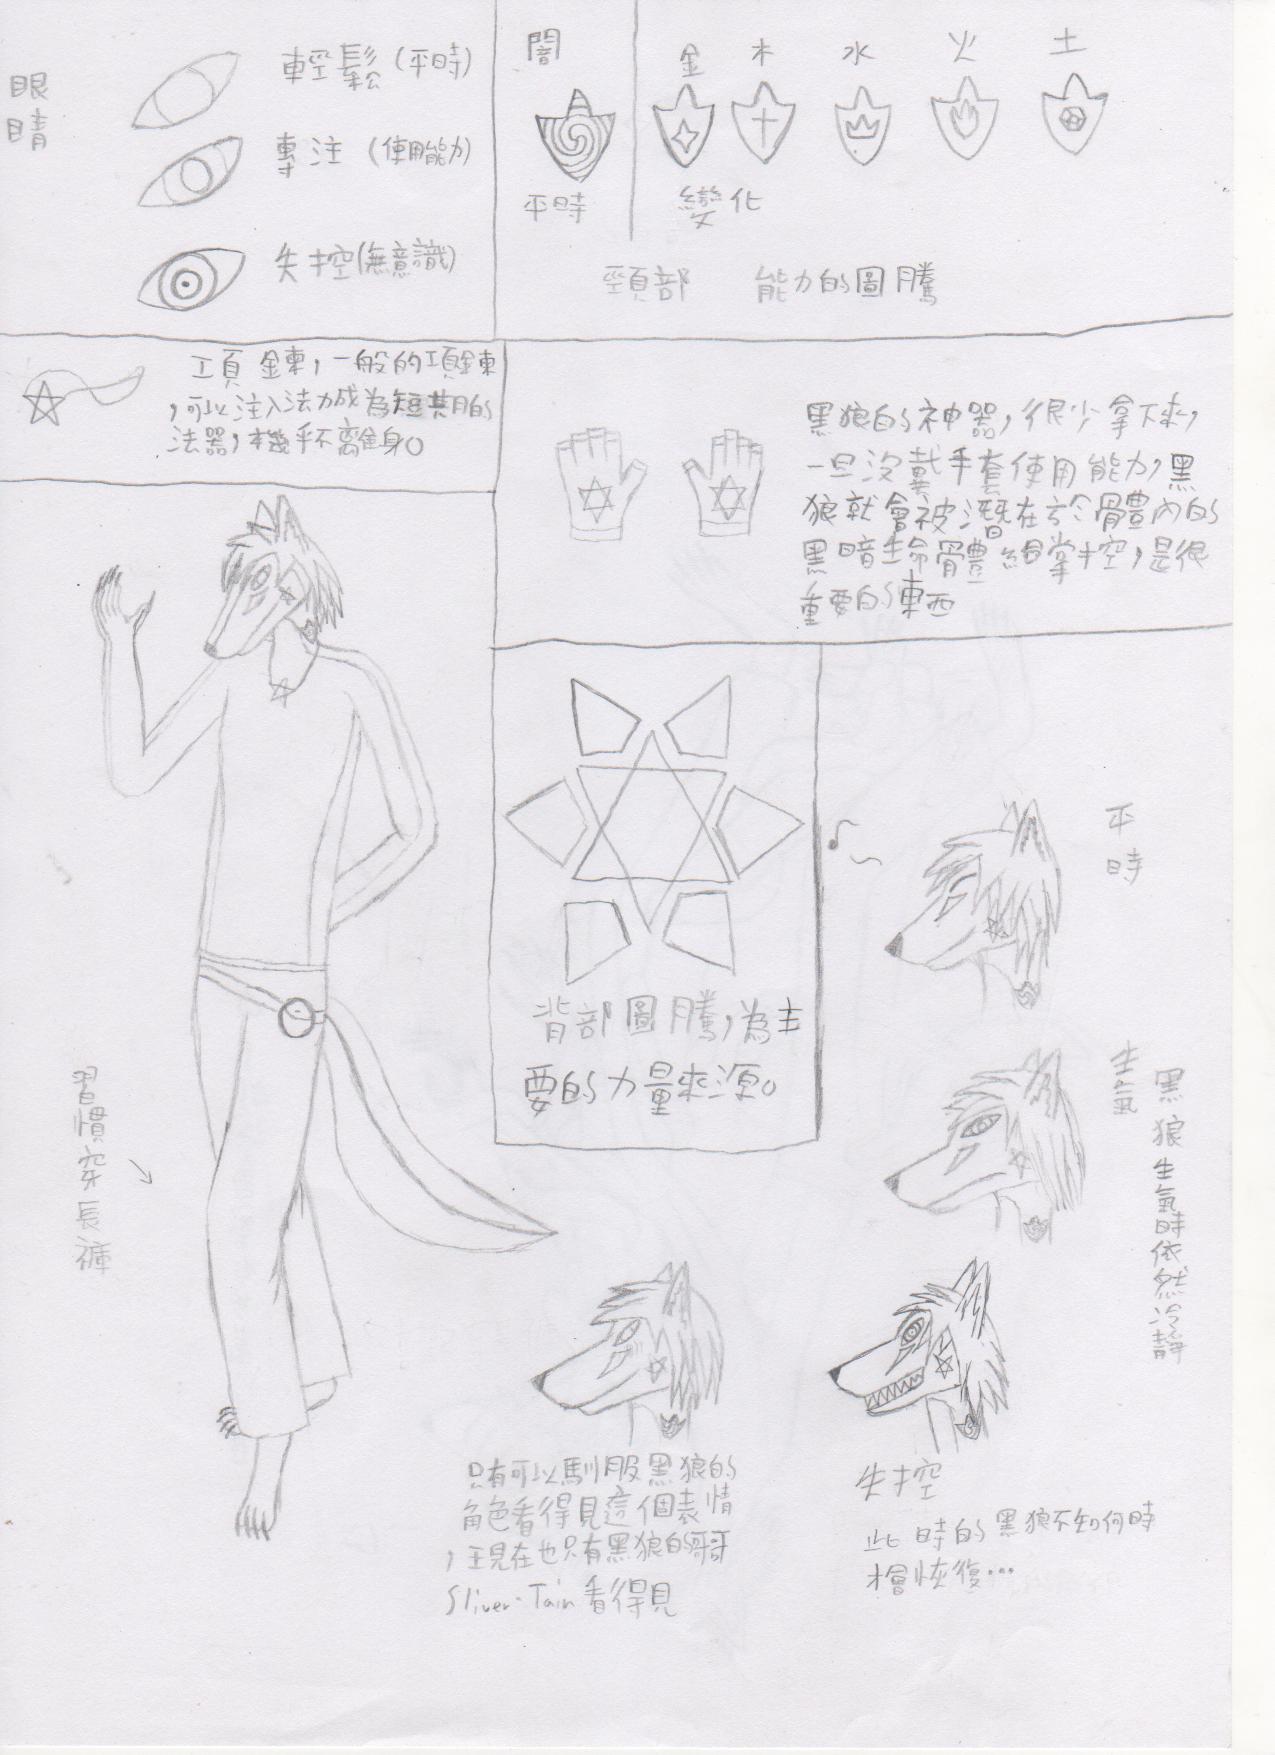 眼睛
輕鬆(平時)
專注(使用能力)
失控(無意識)
闇
平時
金 木 水 火 土
變化
頸部 能力的圖騰
項鍊,一般的項鍊
,可以注入法力成為短期的
法器,幾乎不離身。
黑狼的神器,很少拿下來,
一旦沒戴手套使用能力,黑
狼就會被潛在於體內的
黑暗生命體給掌控,是很
重要的東西
背部圖騰,為主
要的力量來源。
習慣穿長褲
平時
生氣
黑狼生氣時依然冷靜
只有可以馴服黑狼的
角色看得見這個表情
,現在也只有黑狼的哥哥
Sliver·Tain看得見
失控
此時的黑狼不知何時
才會恢復…